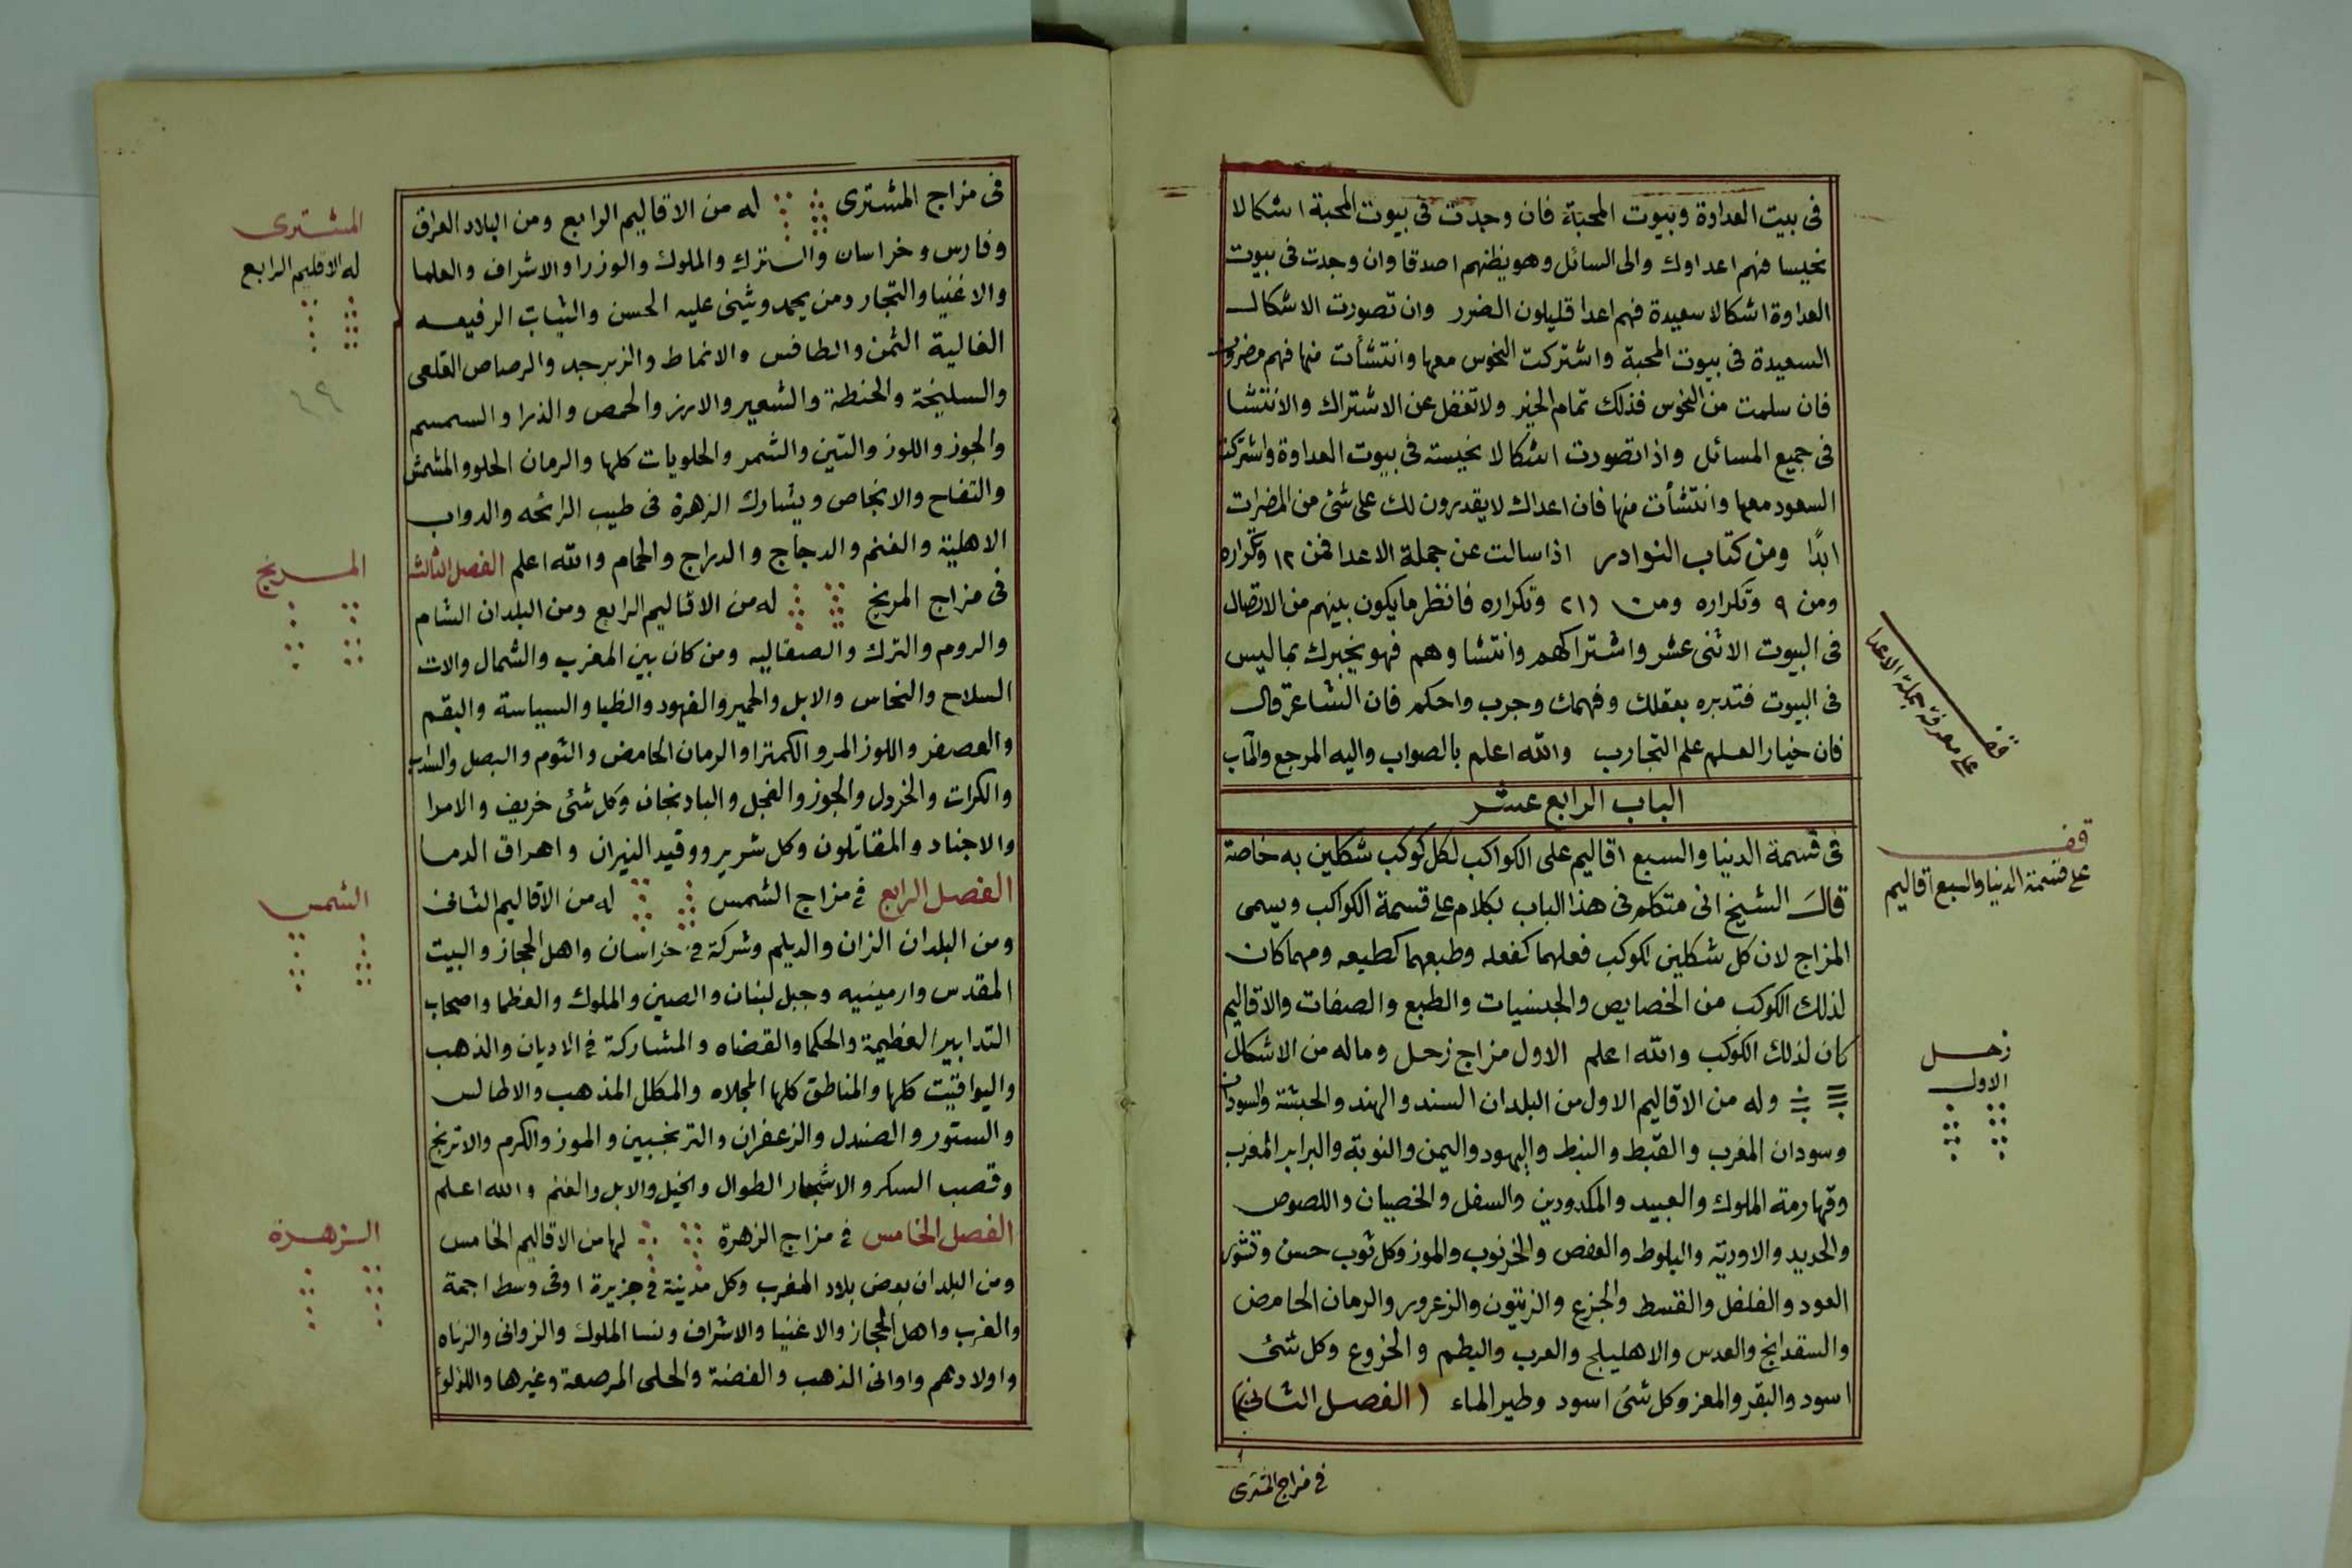 فى بيت العداوة وبيوت المحبة فان وجدت فى بيوت المحبة اشكالا
نحيسا فهم اعداوك والى السائل وهو يظنهم اصدقا وان وجدت فى بيوت
العداوة اشكالا سعيدة فهم اعدا قليلون الضرر وان تصورت الاشكال
السعيدة فى بيوت المحبة واشتركت النحوس معها وانتشأت منها فهم مضرون
فان سلمت من النحوس فذلك تمام الخير ولا تغفل عن الاشتراك والانتشا
فى جميع المسائل واذا تصورت اشكالا نحيسته فى بيوت العداوة واشتركت
السعود معها وانتشأت منها فان اعداك لا يقدرون لك على شئ من المضرات
ابدًا ومن كتاب النوادر اذا سالت عن جملة الاعدا فمن ١٢ وتكراره
ومن ٩ وتكراره ومن وتكراره فانظر ما يكون بينهم من الاتصال
فى البيوت الاثنى عشر واشتراكهم وانتشاوهم فهو يخبرك بما ليس
فى البيوت فتدبره بعقلك وفهمك وجرب واحكم فان الشاعر قال
فان خيار العلم علم التجارب والله اعلم بالصواب واليه المرجع والمآب
على معرفة جملة الاعدا
الباب الرابع عشر
فى قسمة الدنيا والسبع اقاليم على الكواكب لكل كوكب شكلين به خاصة
قف
على قسمة الدنيا والسبع اقاليم
قال الشيخ انى متكلم فى هذا الباب بكلام على قسمة الكواكب ويسمى
المزاج لان كل شكلين لكوكب فعلهما كفعله وطبعهما كطبعه ومهما كان
لذلك الكوكب من الخصايص والجنسيات والطبع والصفات والاقاليم
كان لذلك الكوكب والله اعلم الاول مزاج زحل وماله من الاشكال
زحل
الاول
وله من الاقاليم الاول من البلدان السند والهند والحبشة والسودان
وسودان المغرب والقبط والنبط واليهود واليمن والنوبة والبرابر المغرب
وقهارمة الملوك والعبيد والمكدودين والسفل والخصيان واللصوص
والحديد والاودية والبلوط والعفص والخرنوب والموز وكل ثوب حسن وقشور
العود والفلفل والقسط والجزع والزيتون والزعرور والرمان الحامض
والعدس والاهليلج والعرب والبطم والخروع وكل شئ
اسود والبقر والمعز وكل شئ اسود وطير الماء (الفصل الثانى)
فى مزاج المشترى
فى مزاج المشترى له من الاقاليم الرابع ومن البلاد العراق
المشترى
له الاقليم الرابع
وفارس وخراسان والترك والملوك والوزرا والاشراف والعلما
والاغنيا والتجار ومن يحمد ويثنى عليه الحسن والثياب الرفيعه
الغالية الثمن والطنافس والانماط والزبرجد والرصاص القلعى
٤٩
والسليخة والحنطة والشعير والارز والحمص والذرا والسمسم
والجوز واللوز والتين والثمر والحلويات كلها والرمان الحلو والمشمش
والتفاح والانجاص ويشارك الزهرة فى طيب الرائحه والدواب
الاهلية والغنم والدجاج والدراج والحمام والله اعلم الفصل الثالث
المريخ
فى مزاج المريخ له من الاقاليم الرابع ومن البلدان الشام
والروم والترك والصقاليه ومن كان بين المغرب والشمال والات
السلاح والنحاس والابل والحمير والفهود والظبا والسياسة والبقم
والعصفر واللوز المر والكمترا والرمان الحامض والثوم والبصل والسداب
والكرات والخردل والجوز والفجل والبادنجان وكل شئ خريف والامرا
والاجناد والمقاتلون وكل شرير ووقيد النيران واهراق الدما
الفصل الرابع فى مزاج الشمس له من الاقاليم الثانى
الشمس
ومن البلدان الزان والديلم وشركة فى خراسان واهل الحجاز والبيت
المقدس وارمينيه وجبل لبنان والصين والملوك والعظما واصحاب
التدابير العظيمة والحكما والقضاه والمشاركة فى الاديان والذهب
واليواقيت كلها والمناطق كلها المجلاه والمكلل المذهب والاطالس
والستور والصندل والزعفران والترنجبين والموز والكرم والاترنج
وقصب السكر والاشجار الطوال والخيل والابل والغنم والله اعلم
الفصل الخامس فى مزاج الزهرة لها من الاقاليم الخامس
الزهرة
ومن البلدان بعض بلاد المغرب وكل مدينة فى جزيرة اوفى وسط اجمة
والعرب واهل الحجاز والاغنيا والاشراف ونسا الملوك والزوانى والزناه
واولادهم واوانى الذهب والفضة والحلى المرصعة وغيرها واللؤلؤ